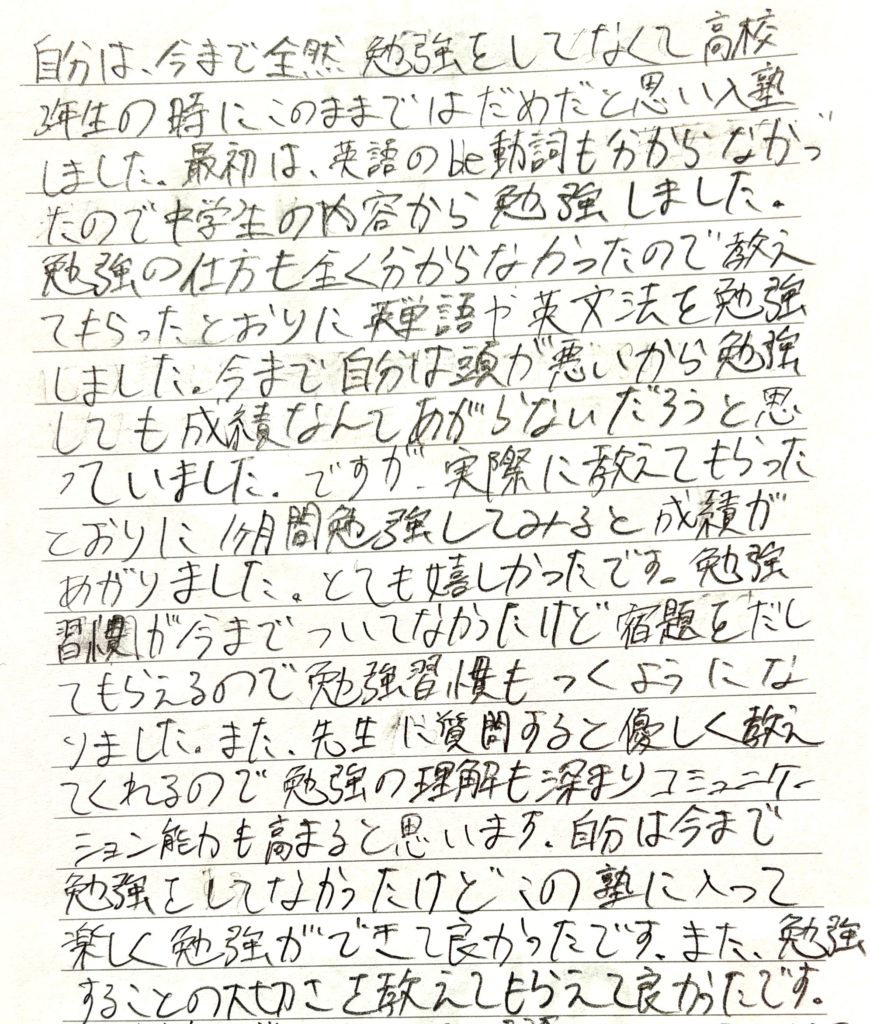 自分は、今まで全然勉強をしてなくて高校
3年生の時にこのままではだめだと思い入塾
しました。最初は、英語のbe動詞も分からなかっ
たので中学生の内容から勉強しました。
勉強の仕方も全く分からなかったので教え
てもらったとおりに英単語や英文法を勉強
しました。今まで自分は頭が悪いから勉強
しても成績なんてあがらないだろうと思
っていました。ですが、実際に教えてもらった
とおりに1ヶ月間勉強してみると成績が
あがりました。とても嬉しかったです。勉強
習慣が今までついてなかったけど宿題をだし
てもらえるので勉強習慣もつくようにな
りました。また、先生に質問すると優しく教え
てくれるので勉強の理解も深まりコミュニケー
ション能力も高まると思います。自分は今まで
勉強をしてなかったけどこの塾に入って
楽しく勉強ができて良かったです。また、勉強
することの大切さを教えてもらえて良かったです。